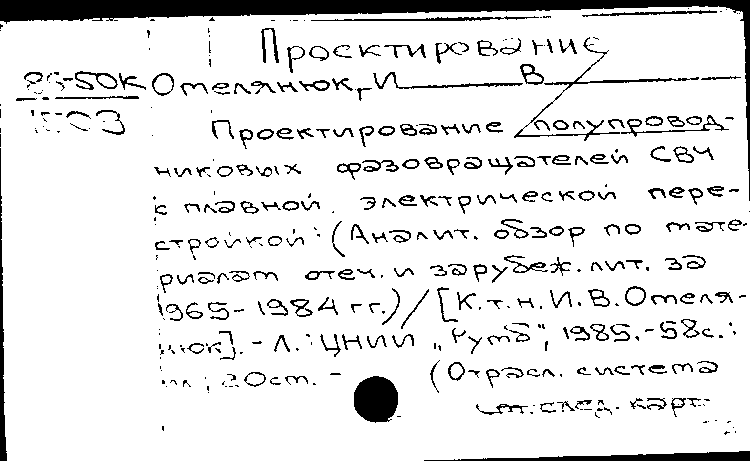 Проектирование
85-50К Отелянюк, И В
1503
Проектирование полупровод-
никовых фазовращателей СВЧ
с плавной электрической пере-
стройкой: (Аналит. обзор по мате-
риалам отеч. и зарубеж. лит. за
1965-1984 гг.) / [К.т.н. И.В. Отеля-
нюк]. - Л.: ЦНИИ „Румб", 1985. - 58с.:
ил; 20см. - (Отрасл. система
см. след. карт.